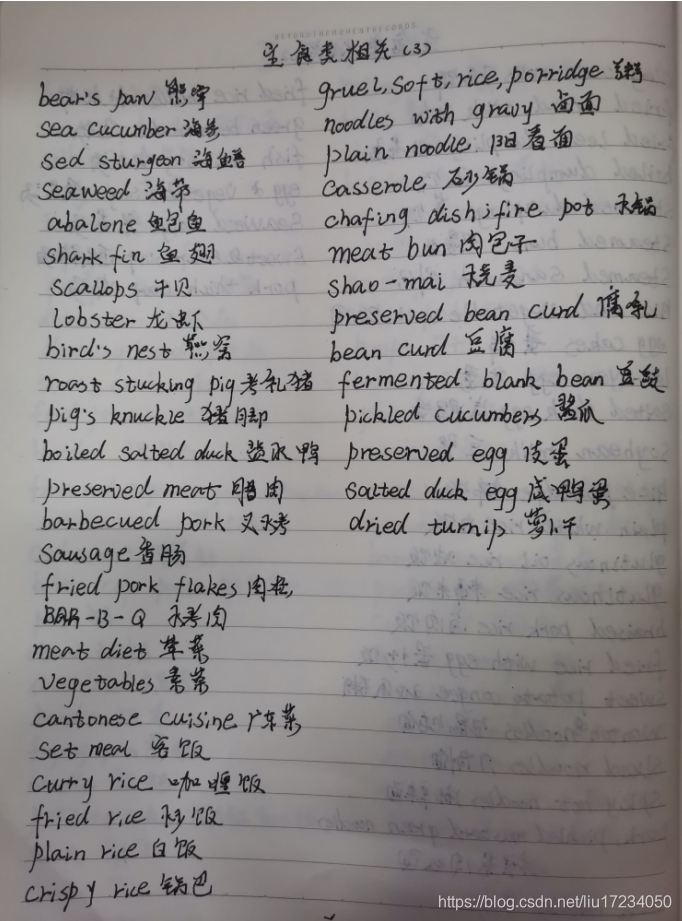 主食类相关(3)
bear's paw 熊掌
sea cucumber 海参
sed sturgeon 海鳝
seaweed 海带
abalone 鲍鱼
shark fin 鱼翅
scallops 干贝
lobster 龙虾
bird's nest 燕窝
roast stucking pig 考乳猪
pig's knuckle 猪脚
boiled salted duck 盐水鸭
preserved meat 腊肉
barbecued pork 叉烤
sausage 香肠
fried pork flakes 肉松
BAR-B-Q 烤肉
meat diet 荤菜
vegetables 素菜
cantonese cuisine 广东菜
set meal 客饭
curry rice 咖喱饭
fried rice 炒饭
plain rice 白饭
crispy rice 锅巴
gruel, soft, rice, porridge 粥
noodles with gravy 卤面
plain noodle 阳春面
casserole 砂锅
chafing dish; fire pot 火锅
meat bun 肉包子
shao-mai 烧麦
preserved bean curd 腐乳
bean curd 豆腐
fermented blank bean 豆豉
pickled cucumbers 酱瓜
preserved egg 皮蛋
salted duck egg 咸鸭蛋
dried turnip 萝卜干
https://blog.csdn.net/liu17234050